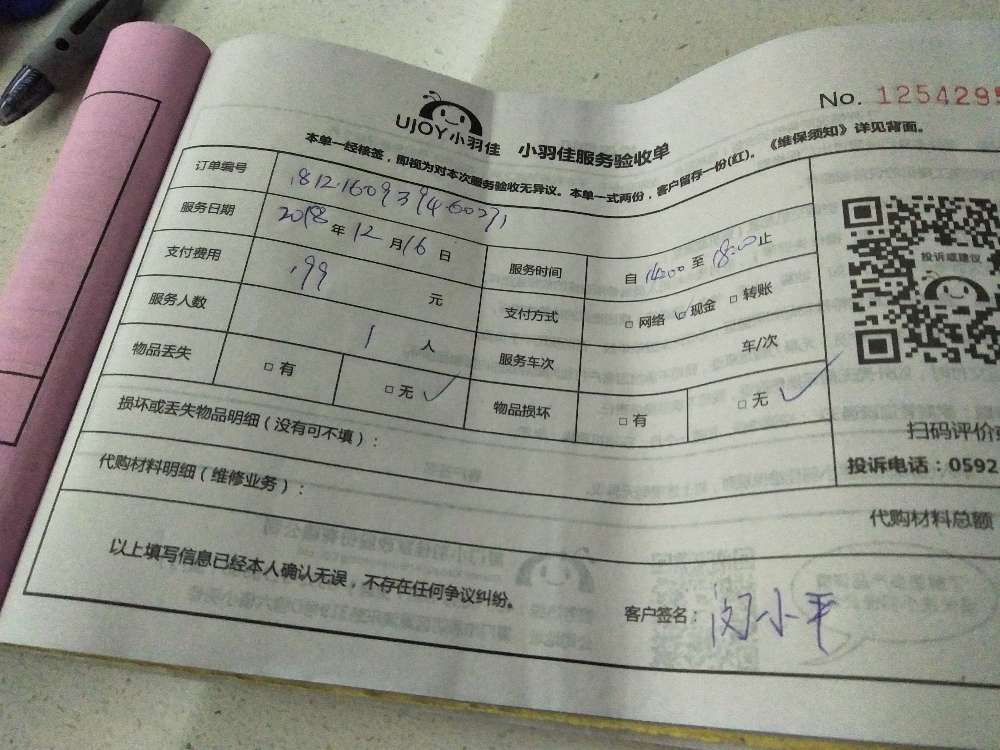 UJOY小羽佳 小羽佳服务验收单
No. 1254295
本单一经核签，即视为对本次服务验收无异议。本单一式两份，客户留存一份(红)。《维保须知》详见背面。
订单编号
服务日期 2018年12月16日 服务时间 自14:00至18:00止
支付费用 199 元 支付方式 □网络 □现金 □转账
服务人数 1 人 服务车次 车/次
物品丢失 □有 □无 ✓ 物品损坏 □有 □无 ✓
投诉或建议
扫码评价
投诉电话：0592
损坏或丢失物品明细（没有可不填）：
代购材料明细（维修业务）：
代购材料总额
以上填写信息已经本人确认无误，不存在任何争议纠纷。
客户签名：闵小平